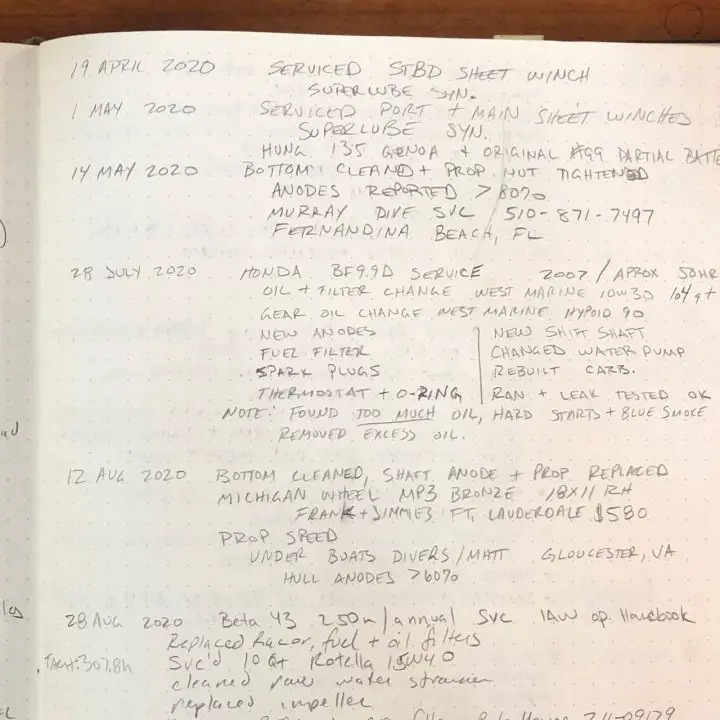 19 APRIL 2020 SERVICED STBD SHEET WINCH
SUPERLUBE SYN.
1 MAY 2020 SERVICED PORT + MAIN SHEET WINCHES
SUPERLUBE SYN.
HUNG 135 GENOA + ORIGINAL #99 PARTIAL BATTE
14 MAY 2020 BOTTOM CLEANED + PROP NOT TIGHTENED
ANODES REPORTED > 80%
MURRAY DIVE SVC / 510-871-7497
FERNANDINA BEACH, FL
28 JULY 2020 HONDA BF9.9D SERVICE 2007 / APROX 50HR
OIL + FILTER CHANGE WEST MARINE 10W30
GEAR OIL CHANGE WEST MARINE HYPOID 90
NEW ANODES NEW SHIFT SHAFT
FUEL FILTER CHANGED WATER PUMP
SPARK PLUGS REBUILT CARB.
THERMOSTAT + O-RING RAN + LEAK TESTED OK
NOTE: FOUND TOO MUCH OIL, HARD STARTS + BLUE SMOKE
REMOVED EXCESS OIL.
12 AUG 2020 BOTTOM CLEANED, SHAFT ANODE + PROP REPLACED
MICHIGAN WHEEL MP3 BRONZE 18X11 RH
FRANK + JIMMIES FT. LAUDERDALE $580
PROP SPEED
UNDER BOATS DIVERS / MATT GLOUCESTER, VA
HULL ANODES >60%
28 AUG 2020 Beta 43 250h / annual Svc IAW op. Handbook
Replaced Racor, fuel + oil filters
TACH: 307.8h Svc'd 10 Qt Rotella 15W40
cleaned raw water strainer
replaced impeller